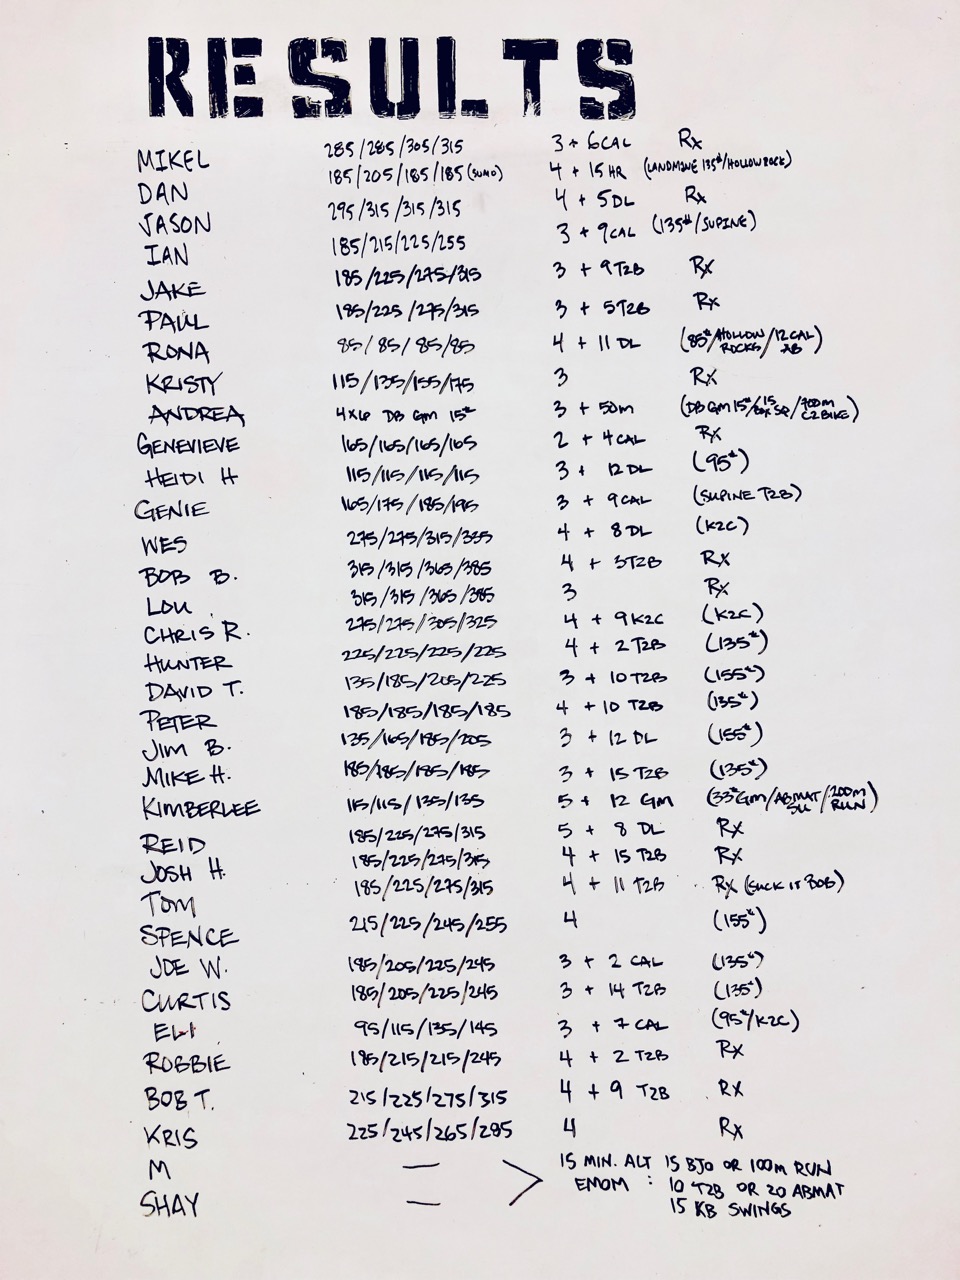 RESULTS
MIKEL 285/285/305/315 3 + 6 CAL Rx
DAN 185/205/185/185 (SUMO) 4 + 15 HR (LANDMINE 135#/HOLLOW ROCK)
JASON 295/315/315/315 4 + 5 DL Rx
IAN 185/215/225/255 3 + 9 CAL (135#/SUPINE)
JAKE 185/225/275/315 3 + 9 T2B Rx
PAUL 185/225/275/315 3 + 5 T2B Rx
RONA 85/85/85/85 4 + 11 DL (85#/HOLLOW ROCKS/12 CAL AB)
KRISTY 115/135/155/175 3 Rx
ANDREA 4x6 DB GM 15# 3 + 50m (DB GM 15#/15 BOX SQ/700m C2 BIKE)
GENEVIEVE 165/165/165/165 2 + 4 CAL Rx
HEIDI H 115/115/115/115 3 + 12 DL (95#)
GENIE 165/175/185/195 3 + 9 CAL (SUPINE T2B)
WES 275/275/315/335 4 + 8 DL (K2C)
BOB B. 315/315/365/385 4 + 3 T2B Rx
LOU 315/315/365/385 3 Rx
CHRIS R. 275/275/305/325 4 + 9 K2C (K2C)
HUNTER 225/225/225/225 4 + 2 T2B (135#)
DAVID T. 135/185/205/225 3 + 10 T2B (155#)
PETER 185/185/185/185 4 + 10 T2B (135#)
JIM B. 135/165/185/205 3 + 12 DL (155#)
MIKE H. 185/185/185/185 3 + 15 T2B (135#)
KIMBERLEE 115/115/135/135 5 + 12 GM (33# GM/ABMAT SU/200m RUN)
REID 185/225/275/315 5 + 8 DL Rx
JOSH H. 185/225/275/315 4 + 15 T2B Rx
TOM 185/225/275/315 4 + 11 T2B Rx (SUCK IT BOB)
SPENCE 215/225/245/255 4 (155#)
JOE W. 185/205/225/245 3 + 2 CAL (135#)
CURTIS 185/205/225/245 3 + 14 T2B (135#)
ELI 95/115/135/145 3 + 7 CAL (95#/K2C)
ROBBIE 185/215/215/245 4 + 2 T2B Rx
BOB T. 215/225/275/315 4 + 9 T2B Rx
KRIS 225/245/265/285 4 Rx
M — > 15 MIN. ALT 15 BJO OR 100m RUN
EMOM : 10 T2B OR 20 ABMAT
SHAY — 15 KB SWINGS